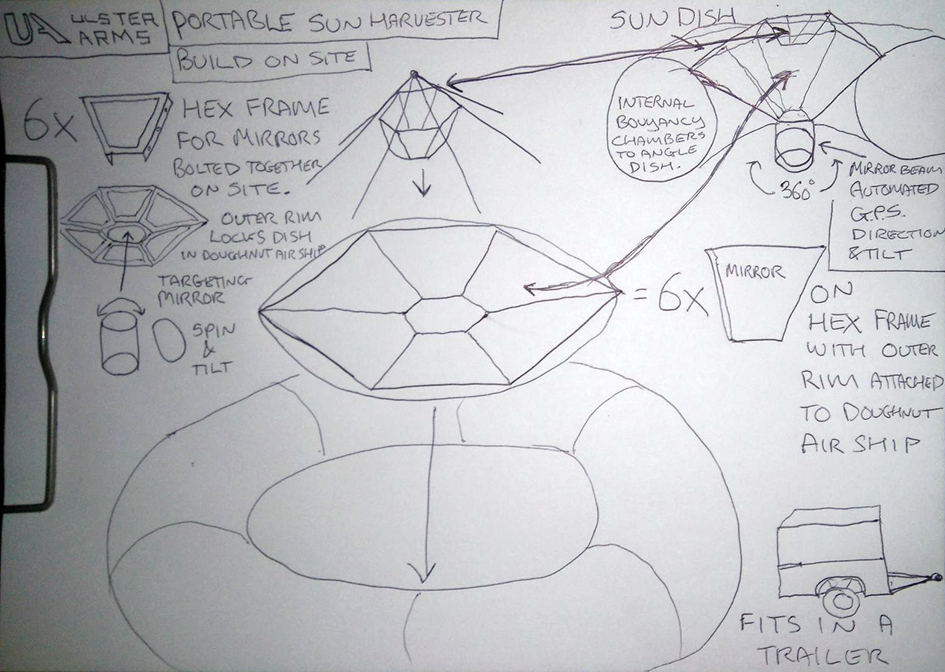 UA ULSTER
ARMS
PORTABLE SUN HARVESTER
BUILD ON SITE
SUN DISH
6X
HEX FRAME
FOR MIRRORS
BOLTED TOGETHER
ON SITE.
OUTER RIM
LOCKS DISH
IN DOUGHNUT AIR SHIP
TARGETING
MIRROR
SPIN
&
TILT
INTERNAL
BOUYANCY
CHAMBERS
TO ANGLE
DISH.
360°
MIRROR BEAM
AUTOMATED
G.P.S.
DIRECTION
& TILT
= 6X
MIRROR
ON
HEX FRAME
WITH OUTER
RIM ATTACHED
TO DOUGHNUT
AIR SHIP
FITS IN A
TRAILER